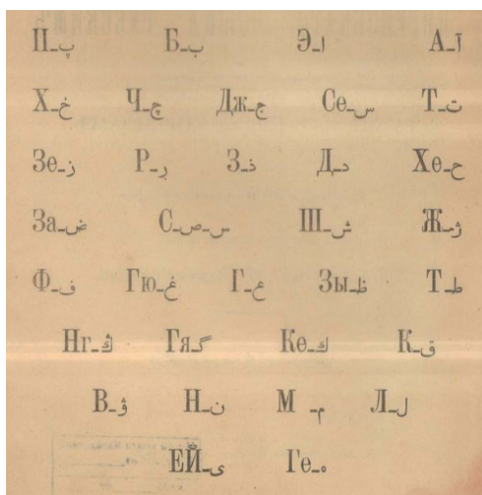 П-پ Б-ب Э-ا А-آ
Х-خ Ч-چ Дж-ج Се-س Т-ت
Зе-ز Р-ر З-ذ Д-د Хе-ح
За-ض С-س-ص Ш-ش Ж-ژ
Ф-ف Гю-غ Г-ع Зы-ظ Т-ط
Нг-ڭ Гя-گ Ке-ك К-ق
В-ۋ Н-ن М-م Л-ل
ЕЙ-ی Ге-ه